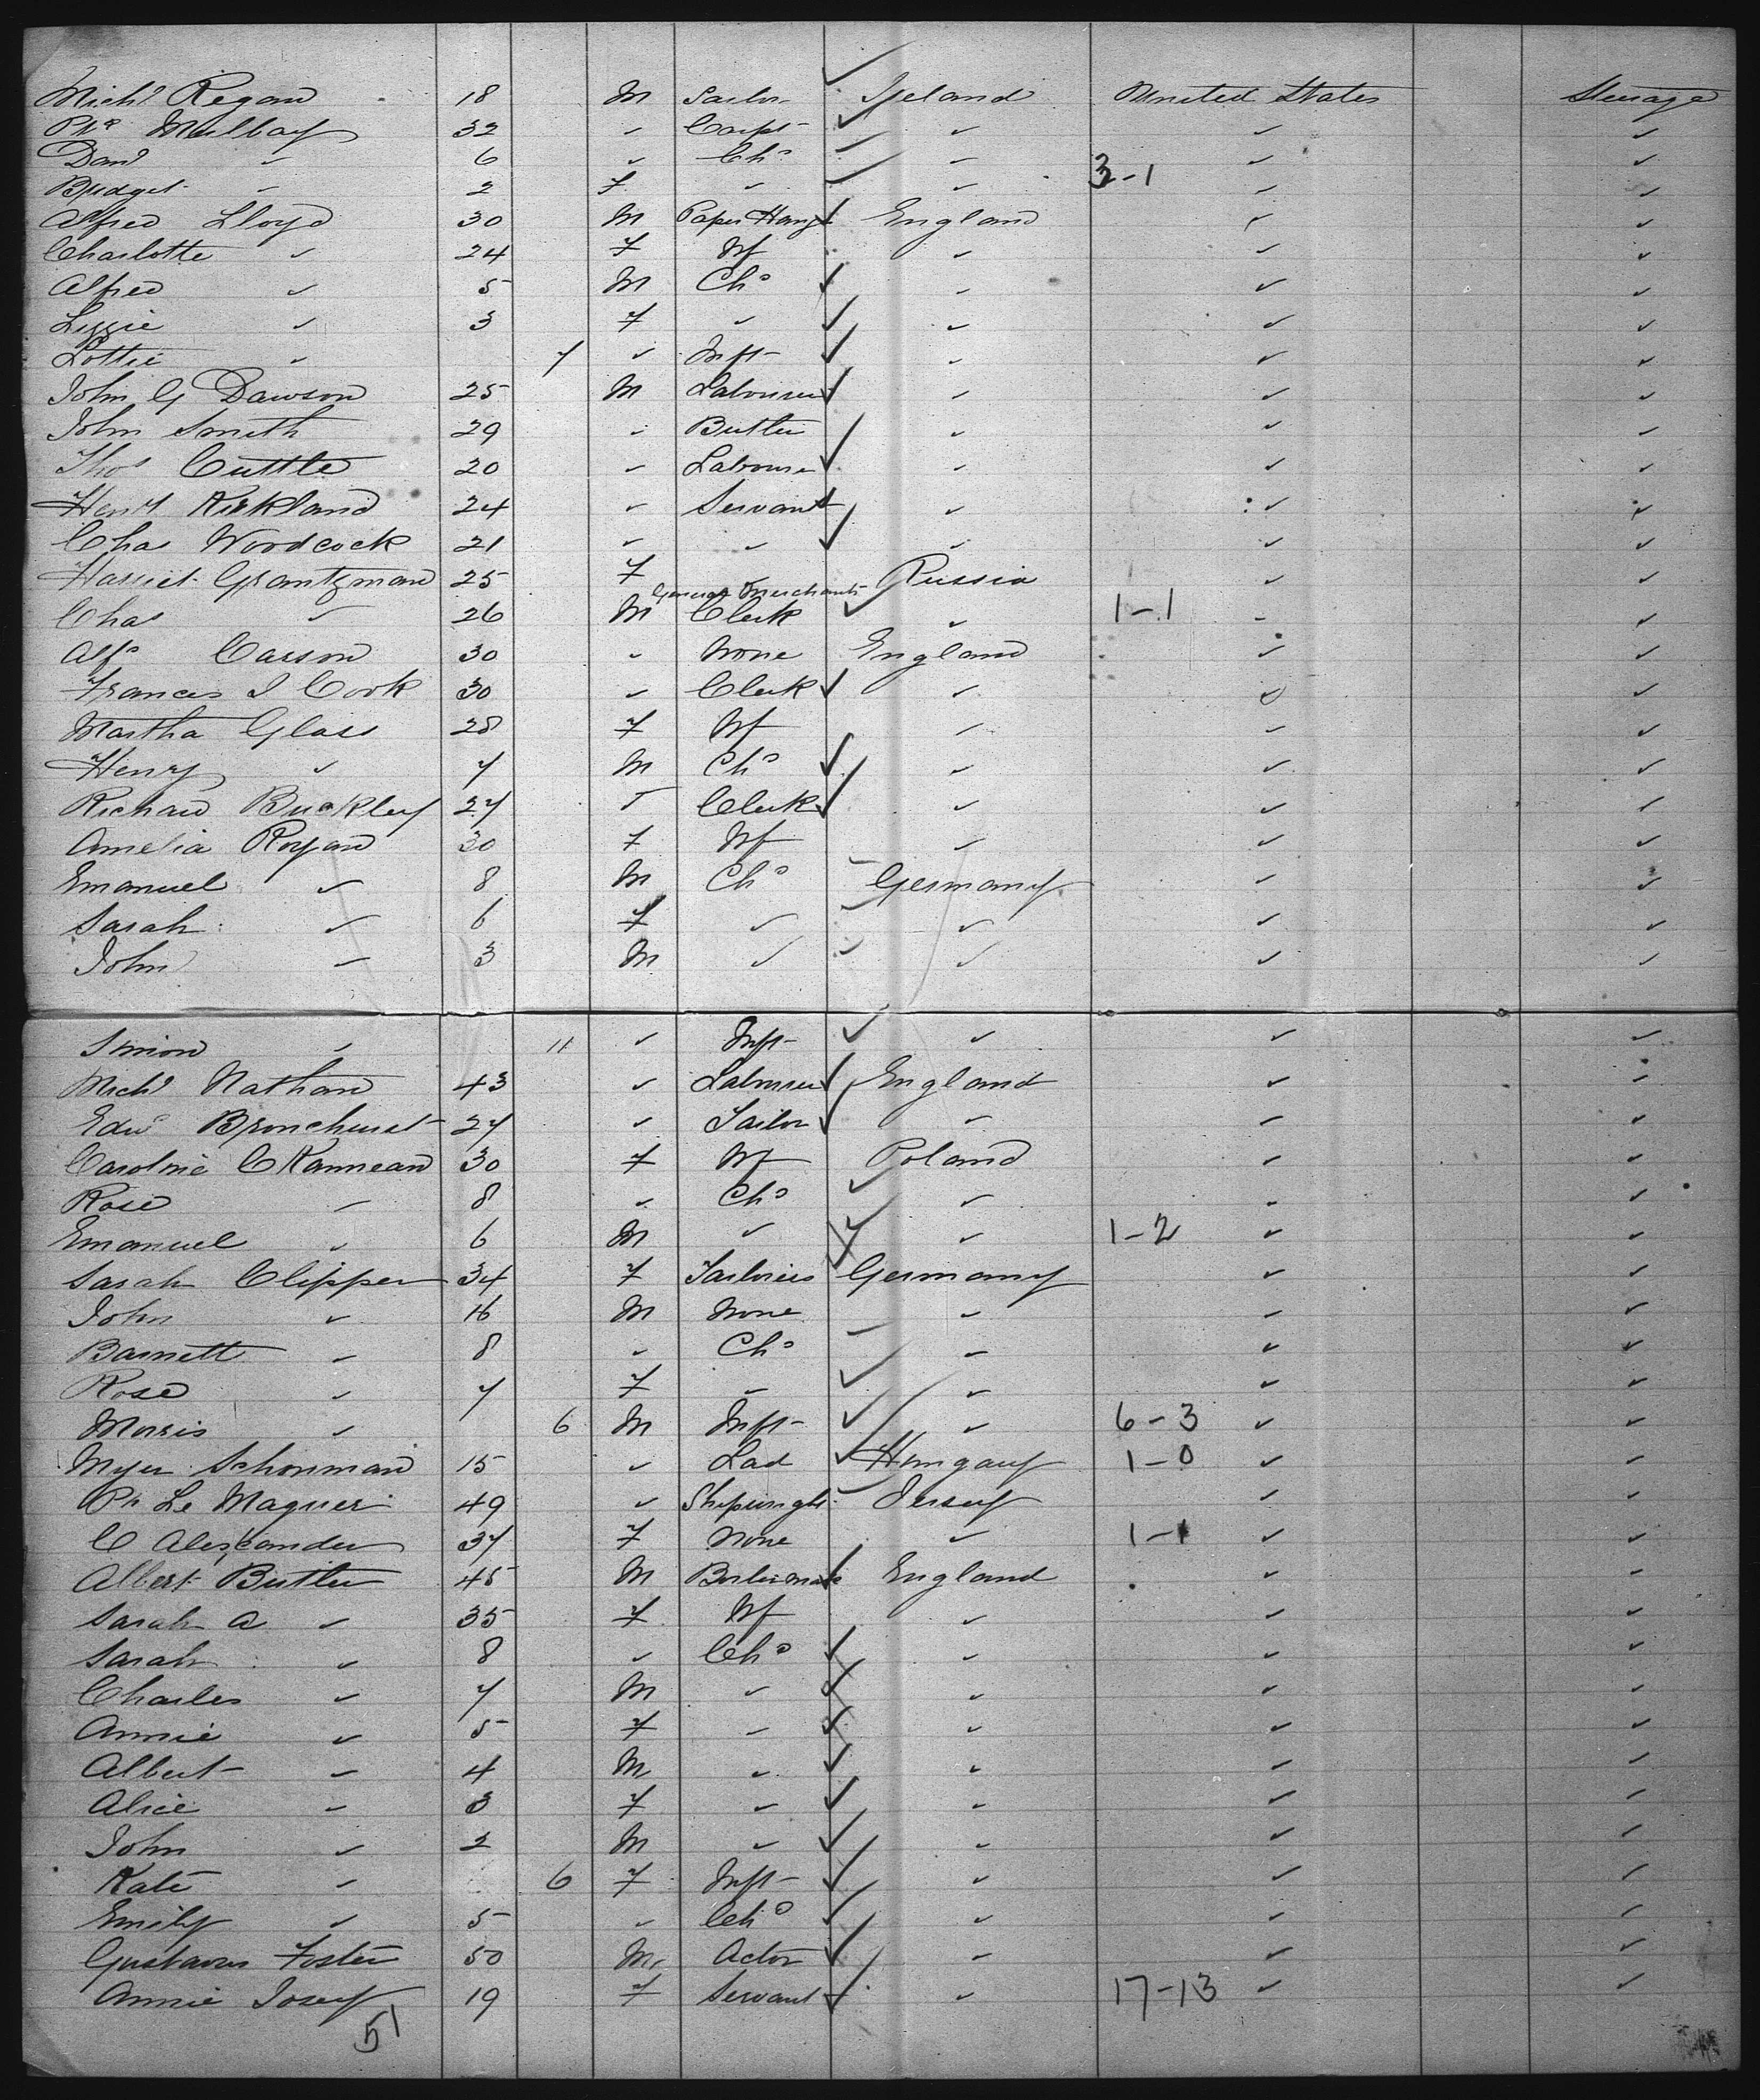 Michl Regan 18 M Sailor Ireland United States Steerage
Pk Mulbay 32 " Carpt " " "
Danl " 6 " Chd " " "
Bridget " 2 F " " 3-1 " "
Alfred Lloyd 30 M Paper Hangr England " "
Charlotte " 24 F Wf " " "
Alfred " 5 M Chd " " "
Lizzie " 3 F " " " "
Lottie " 7 " Inft " " "
John G Dawson 25 M Labourer " " "
John Smith 29 " Butler " " "
Thos Cuttle 20 " Labourer " " "
Heny Kirkland 24 " Servant " " "
Chas Woodcock 21 " " " " "
Harriet Grantzman 25 F " Russia " "
General Merchants
Chas " 26 M Clerk " 1-1 " "
Alfd Carson 30 " None England " "
Frances J Cook 30 " Clerk " " "
Martha Glass 28 F Wf " " "
Henry " 7 M Chd " " "
Richard Buckley 27 " Clerk " " "
Amelia Royan 30 F Wf " " "
Emanuel " 8 M Chd Germany " "
Sarah " 6 F " " " "
John " 3 M " " " "
Simon " 11 " Inft " " "
Michl Nathan 43 " Labourer England " "
Edwd Bronchurst 27 " Tailor " " "
Caroline CKannean 30 F Wf Poland " "
Rose " 8 " Chd " " "
Emanuel " 6 M " " 1-2 " "
Sarah Clipper 34 F Tailoress Germany " "
John " 16 M None " " "
Barnett " 8 " Chd " " "
Rose " 7 F " " " "
Morris " 6 M Inft " 6-3 " "
Myer Schonman 15 " Lad Hungary 1-0 " "
Ph Le Maguer 49 " Shipwright Jersey " "
C Alexander 37 F None " 1-1 " "
Albert Butler 45 M Boilermakr England " "
Sarah A " 35 F Wf " " "
Sarah " 8 " Chd " " "
Charles " 7 M " " " "
Annie " 5 F " " " "
Albert " 4 M " " " "
Alice " 3 F " " " "
John " 2 M " " " "
Kate " 6 F Inft " " "
Emily " 5 " Chd " " "
Gustavus Foster 50 M Actor " " "
Annie Josey 19 F Servant " 17-13 " "
51